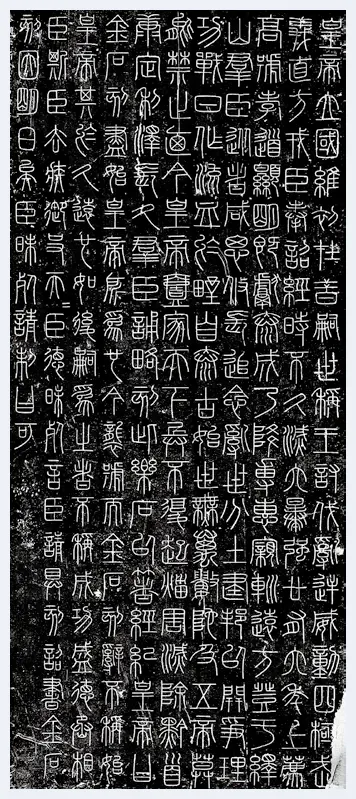 皇帝立國維初在昔嗣世稱王討伐亂逆威動四極武
義直方戎臣奉詔經時不久滅六暴強廿有六年上薦
高號孝道顯明既獻泰成乃降專惠親巡遠方登于繹
山群臣從者咸思攸長追念亂世分土建邦以開爭理
功戰日作流血於野自泰古始世無萬數阤及五帝莫
能禁止廼今皇帝壹家天下兵不復起災害滅除黔首
康定利澤長久群臣誦略刻此樂石以著經紀皇帝曰
金石刻盡始皇帝所為也今襲號而金石刻辭不稱始
皇帝其於久遠也如後嗣為之者不稱成功盛德丞相
臣斯臣去疾御史夫=臣德昧死言臣請具刻詔書金石
刻因明白矣臣昧死請制曰可